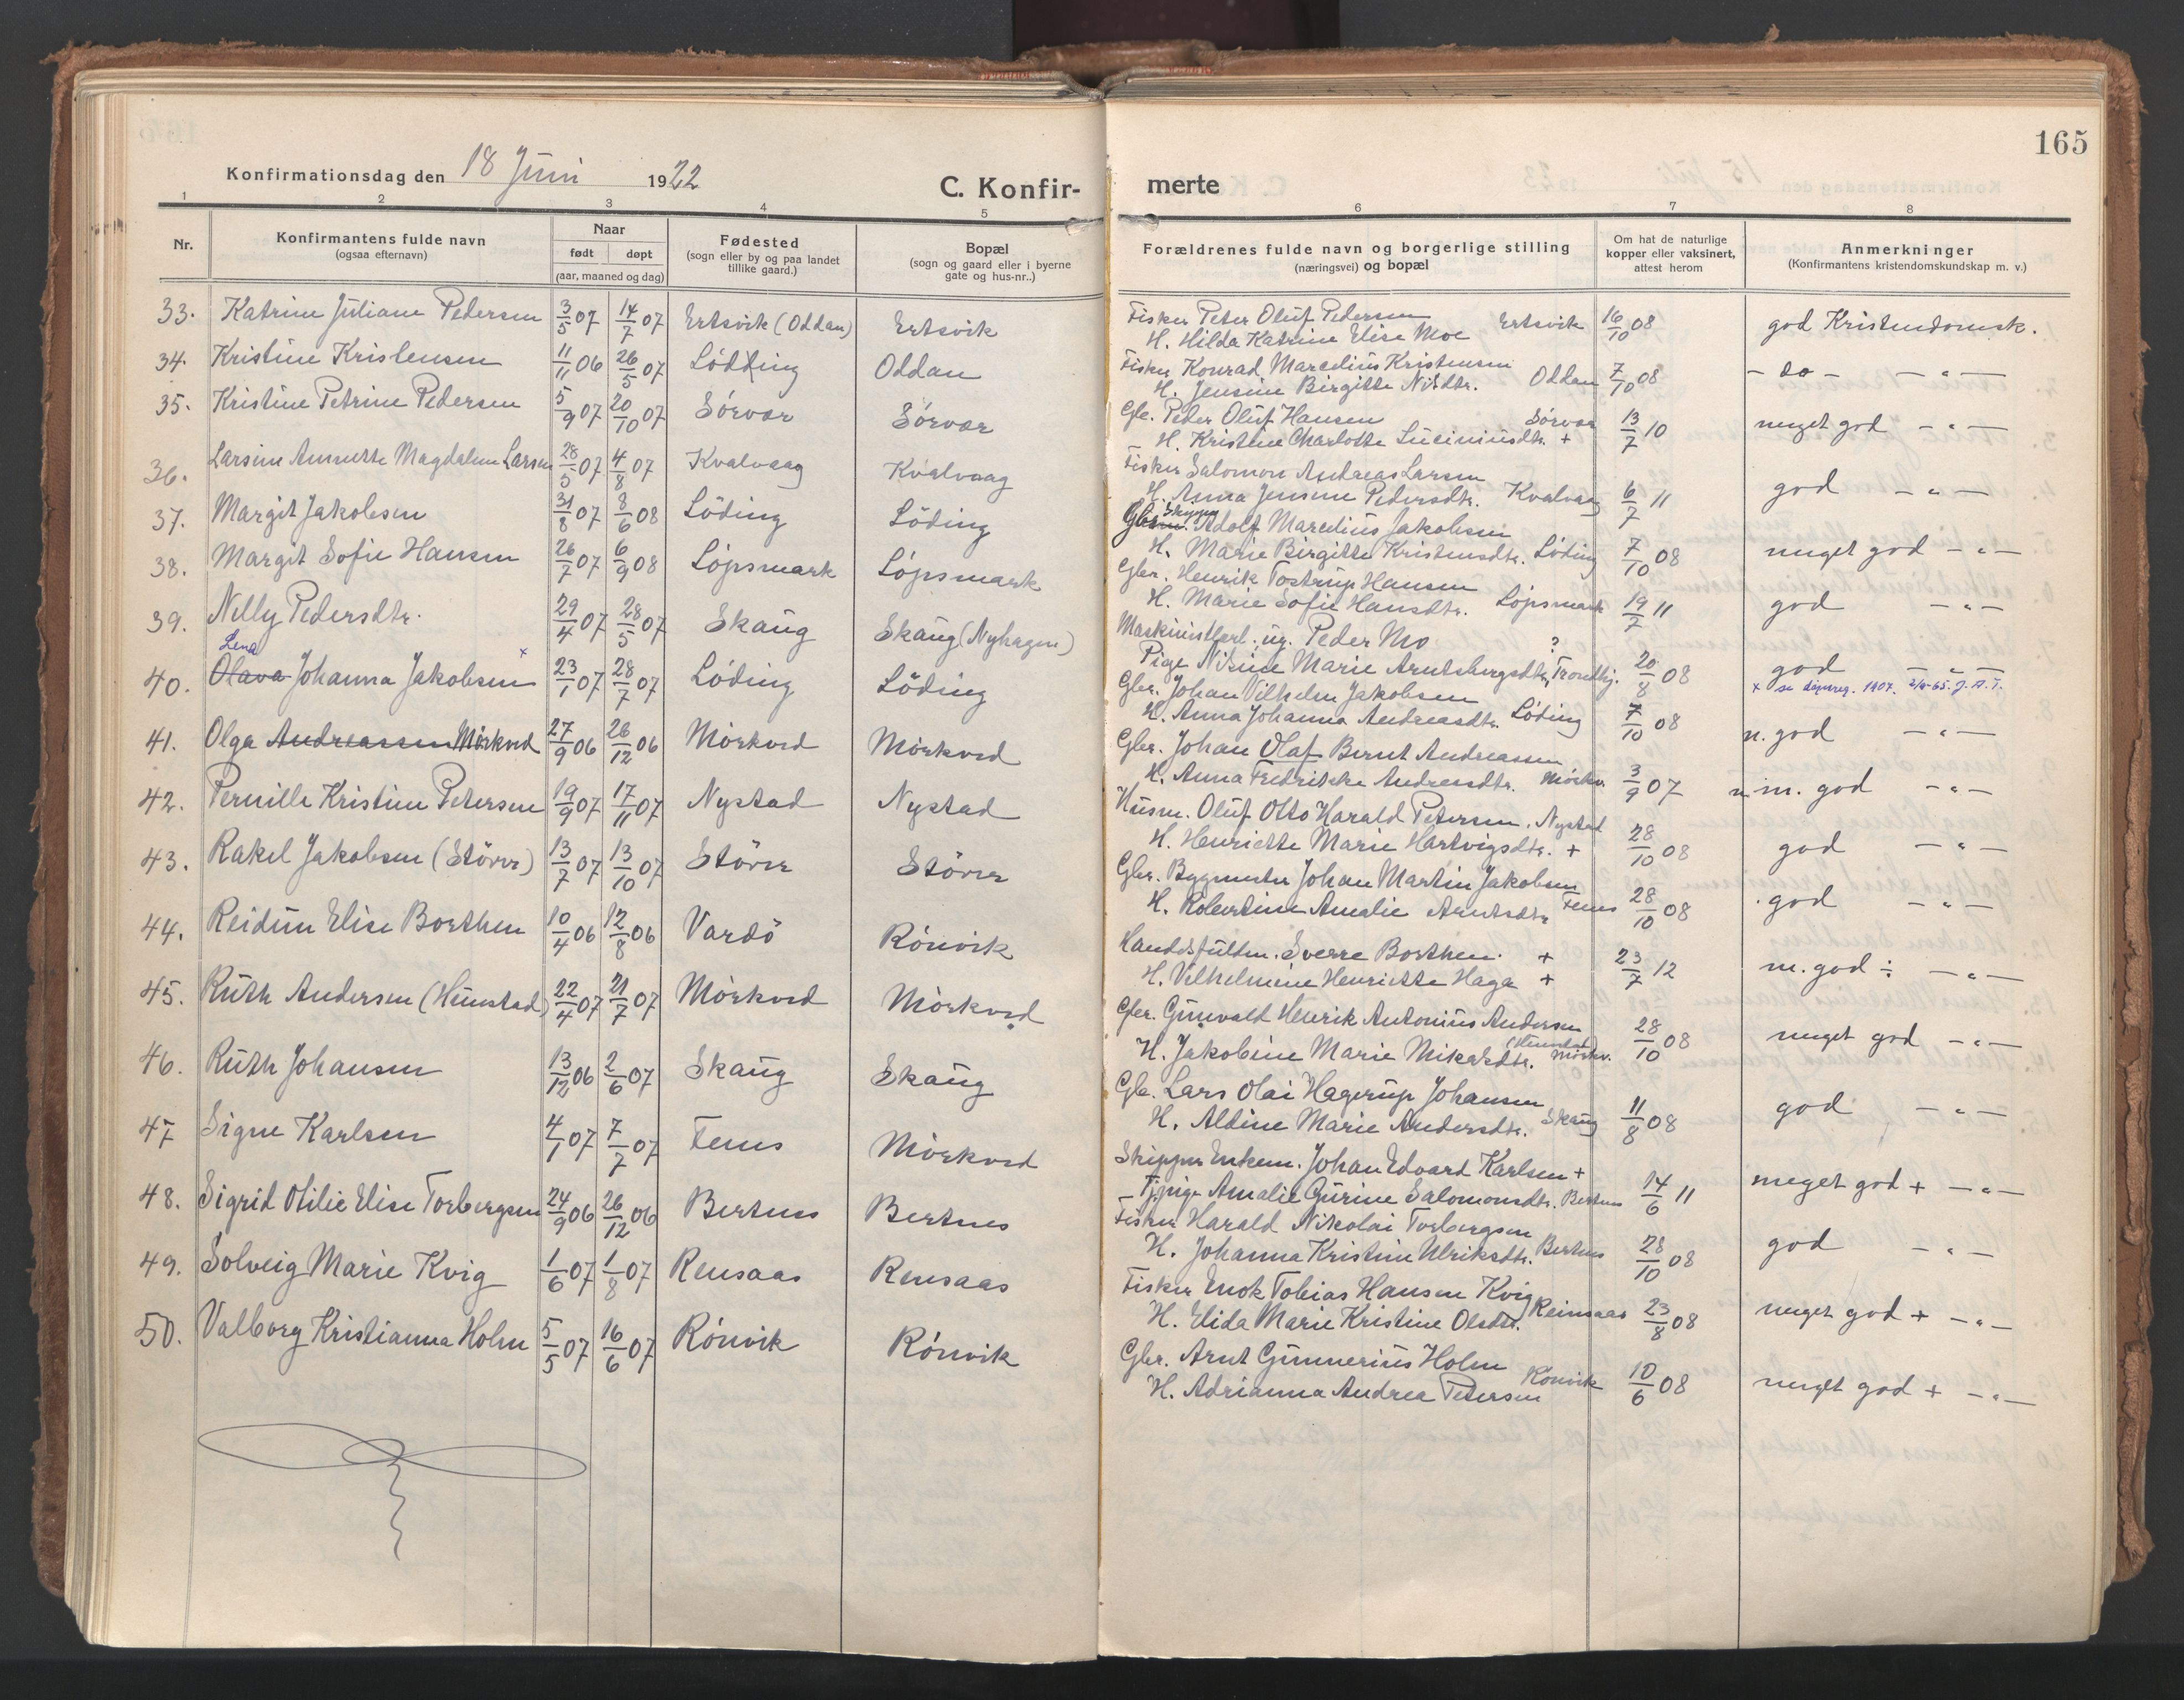 165
Konfirmationsdag den 18 Juni 1922
C. Konfirmerte
1 2 3 4 5 6 7 8
Nr.
Konfirmantens fulde navn
(ogsaa efternavn)
Naar
født døpt
(aar, maaned og dag)
Fødested
(sogn eller by og paa landet
tillike gaard.)
Bopæl
(sogn og gaard eller i byerne
gate og hus-nr..)
Forældrenes fulde navn og borgerlige stilling
(næringsvei) og bopæl
Om hat de naturlige
kopper eller vaksinert,
attest herom
Anmerkninger
(Konfirmantens kristendomskundskap m. v.)
33. Katrine Juliane Pedersen 3/5 07 14/7 07 Ertsvik (Oddan) Ertsvik
Fisker Peter Oluf Pedersen
H. Hilda Katrine Elise Moe Ertsvik 16/10 08 god Kristendomsk.
34. Kristine Kristensen 11/11 06 26/5 07 Lødding Oddan
Fisker Konrad Marcelius Kristensen
H. Jensine Birgitte Nilsdtr. Oddan 7/10 08 - do - - " -
35. Kristine Petrine Pedersen 5/9 07 20/10 07 Sørvær Sørvær
Gbr. Peder Oluf Hansen Sørvær
H. Kristine Charlotte Luciniusdtr. + 13/7 10 meget god - " -
36. Larsine Annette Magdalene Larsen 28/5 07 4/8 07 Kvalvaag Kvalvaag
Fisker Salomon Andreas Larsen
H. Anna Jensine Pedersdtr. Kvalvaag 6/7 11 god - " -
37. Margit Jakobsen 31/8 07 8/6 08 Löding Löding
Skipper Adolf Marcelius Jakobsen
H. Marie Birgitte Kristensdtr. Löding 7/10 08 meget god - " -
38. Margit Sofie Hansen 26/7 07 6/9 08 Løpsmark Løpsmark
Gbr. Henrik Tostrup Hansen
H. Marie Sofie Hansdtr. Løpsmark 19/7 11 god - " -
39. Nelly Pedersdtr. 29/4 07 28/5 07 Skaug Skaug (Nyhagen)
Maskinistlærl. ug. Peder Mo ?
Pige Nisine Marie Arntsbergsdtr, Trondhj. 20/8 08 god - " -
Lena x
40. Olava Johanna Jakobsen 23/1 07 28/7 07 Løding Löding
Gbr. Johan Vilhelm Jakobsen
H. Anna Johanna Andreasdtr. Löding 7/10 08 m. god - " -
x se døpsreg. 1907. 2/4-65. J.A.T.
41. Olga Andreassen Mörkved 27/9 06 26/12 06 Mörkved Mörkved
Gbr. Johan Olaf Bernt Andreassen
H. Anna Fredrikke Andreasdtr. Mörkv. 3/9 07 m. god - " -
42. Pernille Kristine Petersen 19/9 07 17/11 07 Nystad Nystad
Husm. Oluf Otto Harald Petersen. Nystad
H. Henriette Marie Hartvigsdtr. + 28/10 08 god - " -
43. Rakel Jakobsen (Störer) 13/7 07 13/10 07 Störer Störer
Gbr. Bygmester Johan Martin Jakobsen
H. Robertine Amalie Arntsdtr Fenes 28/10 08 god - " -
44. Reidun Elise Borthen 10/4 06 12/8 06 Vardö Rönvik
Handelsfuldm. Sverre Borthen. +
H. Vilhelmine Henriette Haga + 23/7 12 m. god ÷ - " -
45. Ruth Andersen (Hunstad) 22/4 07 21/7 07 Mörkved Mörkved
Gbr. Gunvald Henrik Antonius Andersen (Hunstad)
H. Jakobine Marie Mikalsdtr. Mörkv. 28/10 08 meget god - " -
46. Ruth Johansen 13/12 06 2/6 07 Skaug Skaug
Gbr. Lars Olai Hagerup Johansen
H. Aldine Marie Andersdtr. Skaug 11/8 08 god - " -
47 Signe Karlsen 4/1 07 7/7 07 Fenes Mörkved
Skipper Enkem. Johan Edvard Karlsen +
Tjpige Amalie Gurine Salomonsdtr. Bertnes 14/6 11 meget god + - " -
48. Sigrid Otilie Elise Torbergsen 24/9 06 26/12 06 Bertnes Bertnes
Fisker Harald Nikolai Torbergsen
H. Johanna Kristine Ulriksdtr. Bertnes 28/10 08 god - " -
49. Solveig Marie Kvig 1/6 07 1/8 07 Rensaas Rensaas
Fisker Enok Tobias Hansen Kvig
H. Elida Marie Kristine Olsdtr. Reinsaas 23/8 08 meget god + - " -
50. Valborg Kristianna Holm 5/5 07 16/6 07 Rönvik Rönvik
Gbr. Arnt Gunnerius Holm
H. Adrianna Andrea Petersen Rönvik 10/6 08 meget god + - " -